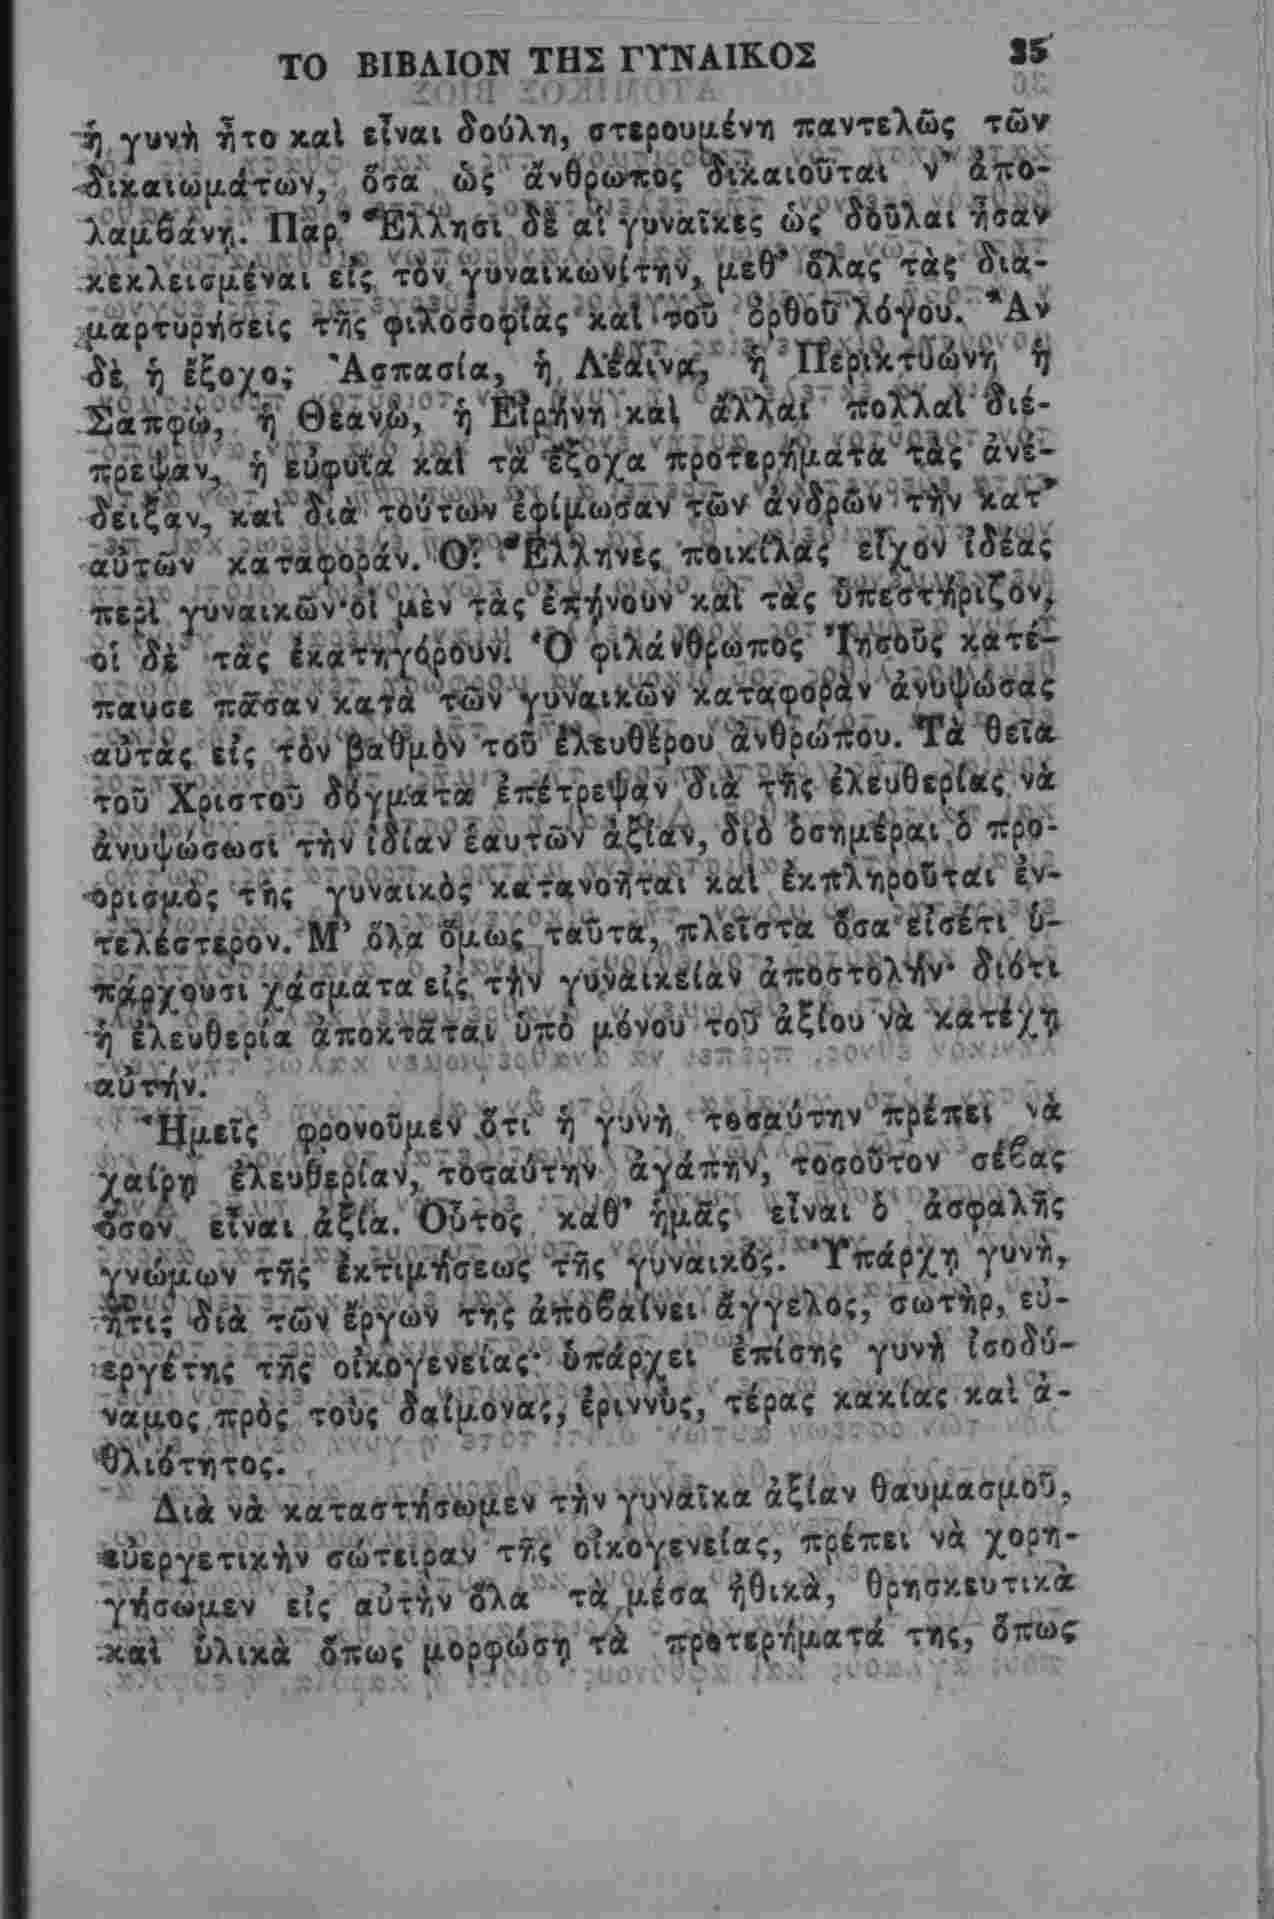 ΤΟ ΒΙΒΛΙΟΝ ΤΗΣ ΓΥΝΑΙΚΟΣ 35
ἡ γυνὴ ἦτο καὶ εἶναι δούλη, στερουμένη παντελῶς τῶν
δικαιωμάτων, ὅσα ὡς ἄνθρωπος δικαιοῦται ν’ ἀπο-
λαμβάνῃ. Παρ’ Ἕλλησι δὲ αἱ γυναῖκες ὡς δοῦλαι ἦσαν
κεκλεισμέναι εἰς τὸν γυναικωνίτην, μεθ’ ὅλας τὰς δια-
μαρτυρήσεις τῆς φιλοσοφίας καὶ τοῦ ὀρθοῦ λόγου. Ἂν
δὲ ἡ ἔξοχος Ἀσπασία, ἡ Λέαινα, ἡ Περικτυώνη ἡ
Σαπφὼ, ἡ Θεανὼ, ἡ Εἰρήνη καὶ ἄλλαι πολλαὶ διέ-
πρεψαν, ἡ εὐφυΐα καὶ τὰ ἔξοχα προτερήματα τὰς ἀνέ-
δειξαν, καὶ διὰ τούτων ἐφίμωσαν τῶν ἀνδρῶν τὴν κατ’
αὐτῶν καταφοράν. Οἱ Ἕλληνες ποικίλας εἶχον ἰδέας
περὶ γυναικῶν· οἱ μὲν τὰς ἐπῄνουν καὶ τὰς ὑπεστήριζον,
οἱ δὲ τὰς ἐκατηγόρουν. Ὁ φιλάνθρωπος Ἰησοῦς κατέ-
παυσε πᾶσαν κατὰ τῶν γυναικῶν καταφορὰν ἀνυψώσας
αὐτὰς εἰς τὸν βαθμὸν τοῦ ἐλευθέρου ἀνθρώπου. Τὰ θεῖα
τοῦ Χριστοῦ δόγματα ἐπέτρεψαν διὰ τῆς ἐλευθερίας νὰ
ἀνυψώσωσι τὴν ἰδίαν ἑαυτῶν ἀξίαν, διὸ ὁσημέραι ὁ προ-
ορισμὸς τῆς γυναικὸς κατανοῆται καὶ ἐκπληροῦται ἐν-
τελέστερον. Μ’ ὅλα ὅμως ταῦτα, πλεῖστα ὅσα εἰσέτι ὑ-
πάρχουσι χάσματα εἰς τὴν γυναικείαν ἀποστολήν· διότι
ἡ ἐλευθερία ἀποκτᾶται ὑπὸ μόνου τοῦ ἀξίου νὰ κατέχῃ
αὐτήν.
Ἡμεῖς φρονοῦμεν ὅτι ἡ γυνὴ τοσαύτην πρέπει νὰ
χαίρῃ ἐλευθερίαν, τοσαύτην ἀγάπην, τοσοῦτον σέβας
ὅσον εἶναι ἀξία. Οὗτος καθ’ ἡμᾶς εἶναι ὁ ἀσφαλὴς
γνώμων τῆς ἐκτιμήσεως τῆς γυναικός. Ὑπάρχῃ γυνὴ,
ἥτις διὰ τῶν ἔργων της ἀποβαίνει ἄγγελος, σωτὴρ, εὐ-
εργέτης τῆς οἰκογενείας· ὑπάρχει ἐπίσης γυνὴ ἰσοδύ-
ναμος πρὸς τοὺς δαίμονας, ἐριννὺς, τέρας κακίας καὶ ἀ-
θλιότητος.
Διὰ νὰ καταστήσωμεν τὴν γυναῖκα ἀξίαν θαυμασμοῦ,
εὐεργετικὴν σώτειραν τῆς οἰκογενείας, πρέπει νὰ χορη-
γήσωμεν εἰς αὐτὴν ὅλα τὰ μέσα ἠθικὰ, θρησκευτικὰ
καὶ ὑλικὰ ὅπως μορφώσῃ τὰ προτερήματά της, ὅπως